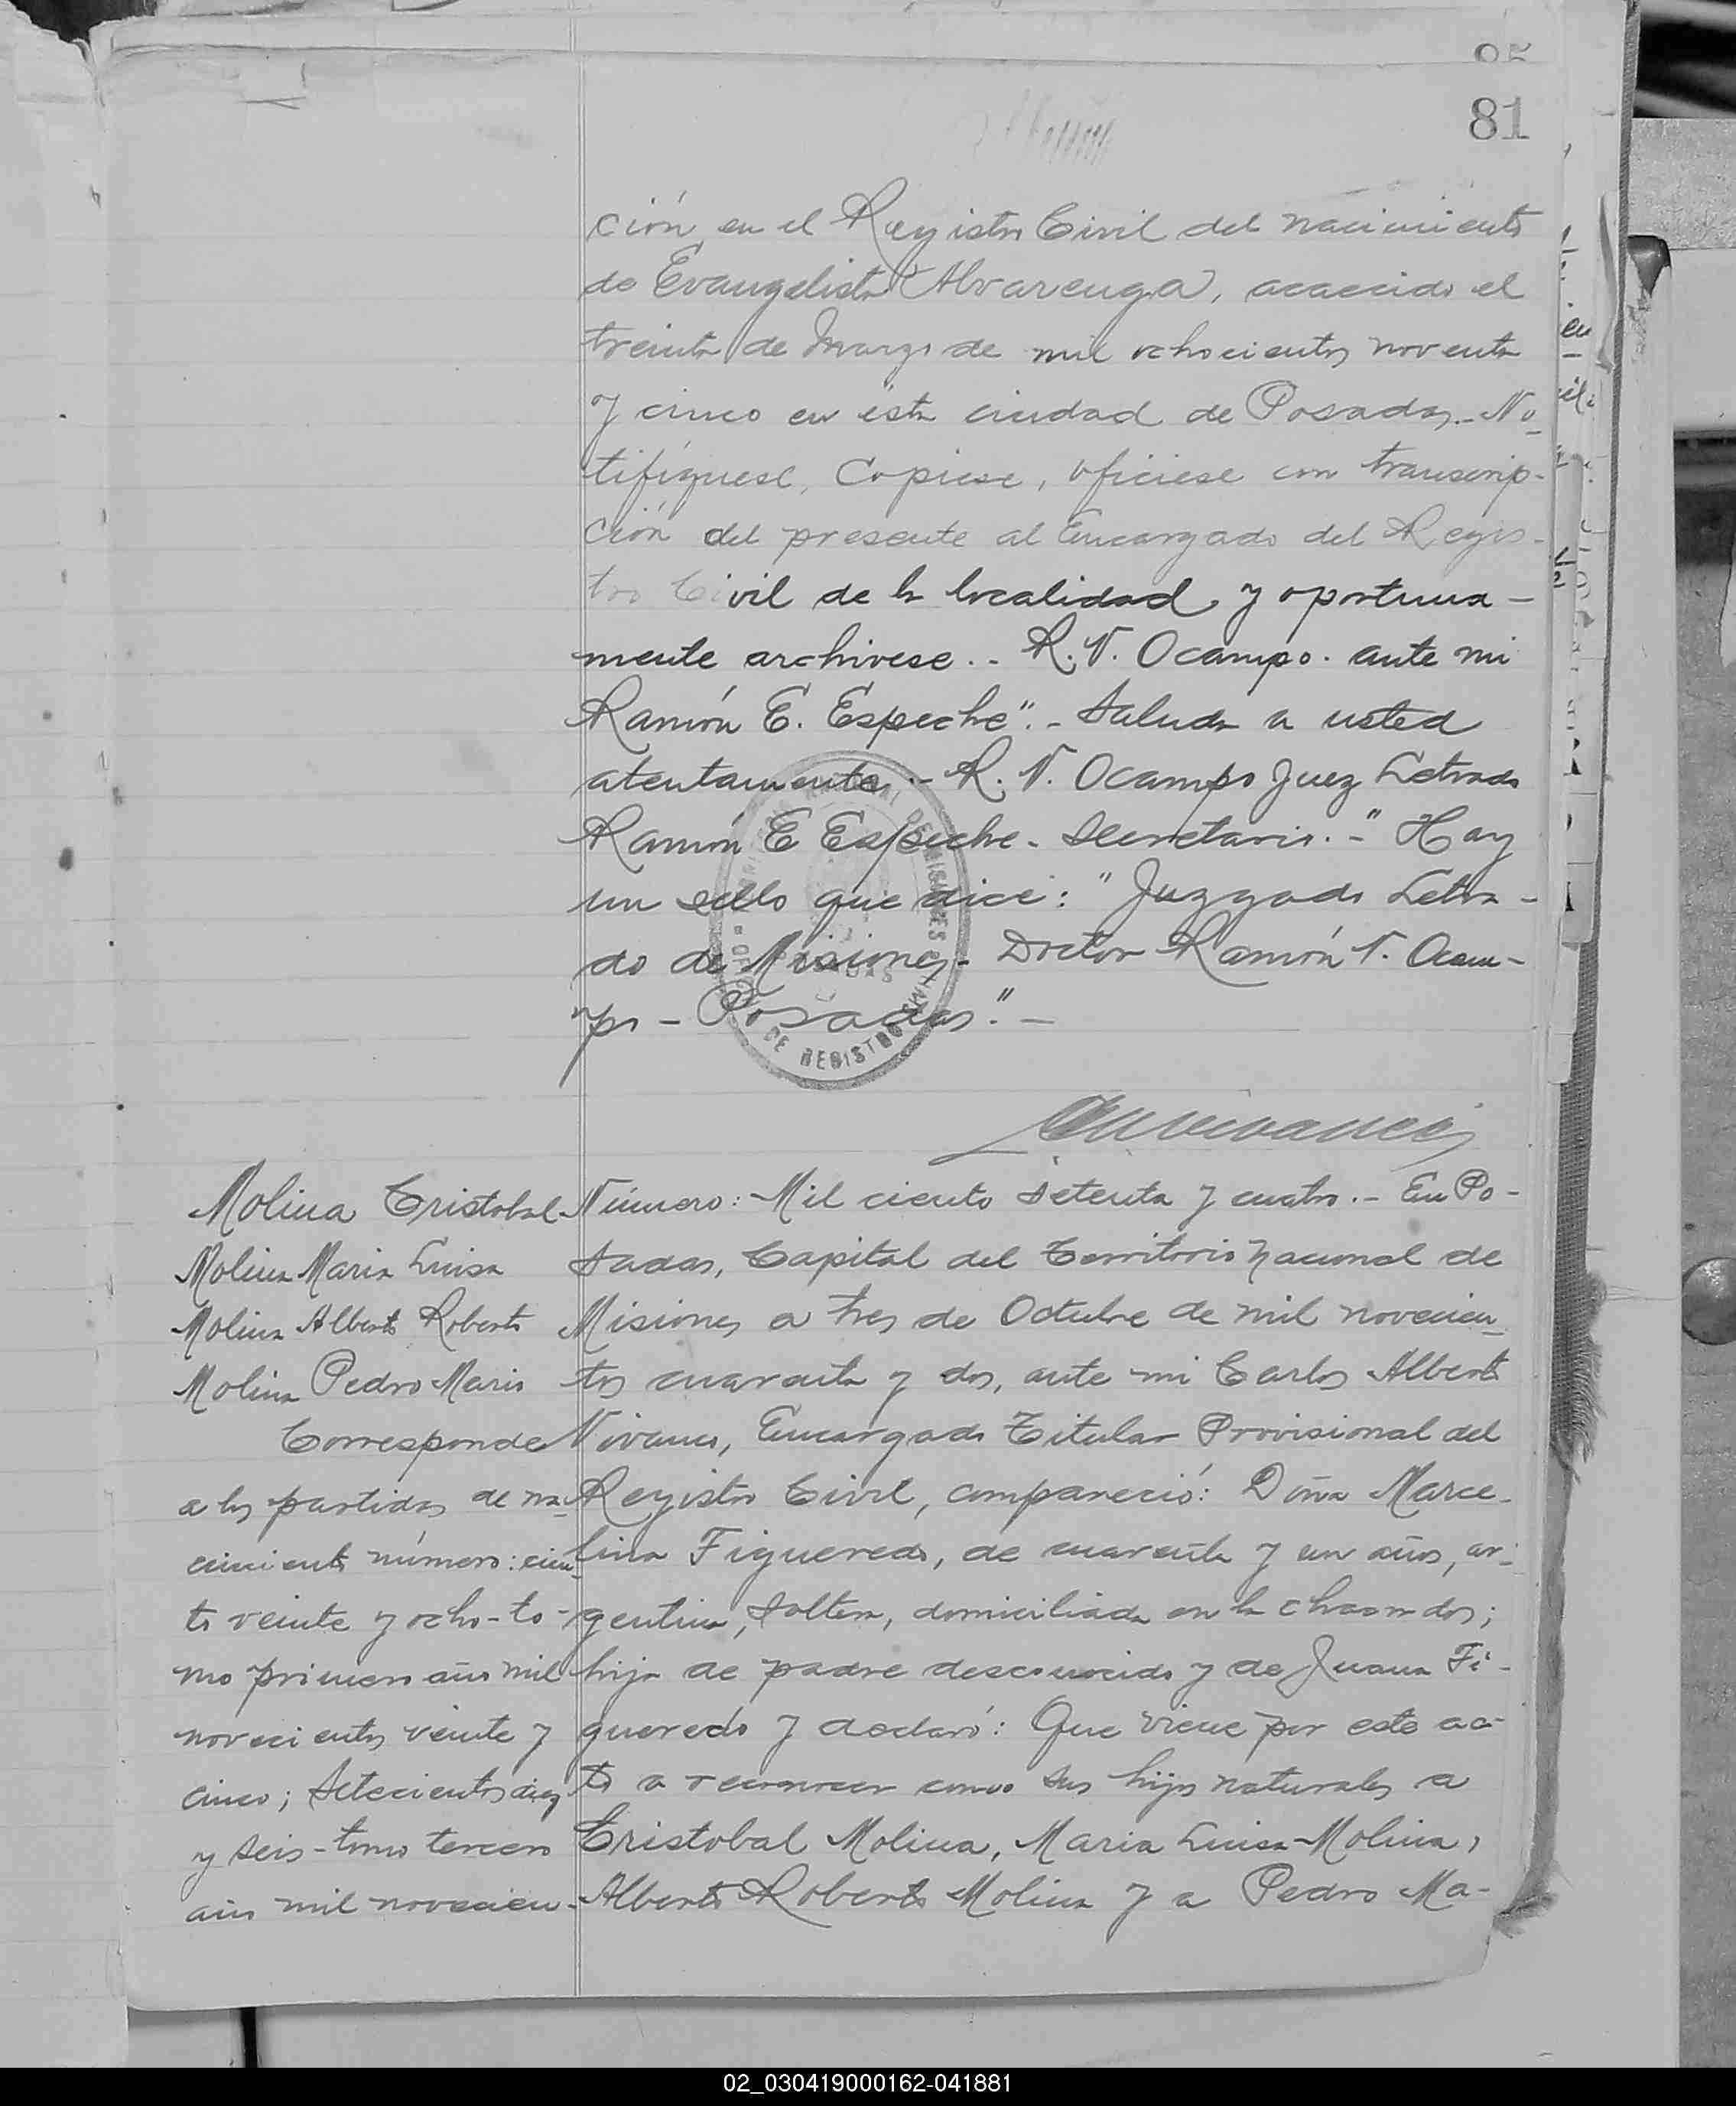 85
81
ción en el Registro Civil del nacimiento
de Evangelista Alvarenga, acaecido el
treinta de Marzo de mil ochocientos noventa
y cinco en ésta ciudad de Posadas.- No-
tifíquese, Copiese, ofíciese con transcrip-
ción del presente al Encargado del Regis-
tro Civil de la localidad y oportuna-
mente archivese.- R. V. Ocampo. ante mi
Ramón E. Espeche".- Saluda a usted
atentamente.- R. V. Ocampo Juez Letrado
Ramón E Espeche - Secretario.-" Hay
un sello que dice: "Juzgado Letra-
do de Misiones - Doctor Ramón V. Ocam-
po - Posadas."-
DE REGISTRO
Molina Cristobal
Molina Maria Luisa
Molina Alberto Roberto
Molina Pedro Mario
Corresponde
a las partidas de na-
cimiento número: cien-
to veinte y ocho-to-
mo primero año mil
novecientos veinte y
cinco; Setecientos diez
y seis-tomo tercero
año mil novecien-
Número: Mil ciento setenta y cuatro.- En Po-
sadas, Capital del Territorio Nacional de
Misiones a tres de Octubre de mil novecien-
tos cuarenta y dos, ante mi Carlos Alberto
Vivanco, Encargado Titular Provisional del
Registro Civil, compareció: Doña Marce-
lina Figueredo, de cuarenta y un años, ar-
gentina, soltera, domiciliada en la chacra dos;
hija de padre desconocido y de Juana Fi-
gueredo y declaró: Que viene por este ac-
to a reconocer como sus hijos naturales a
Cristobal Molina, Maria Luisa Molina,
Alberto Roberto Molina y a Pedro Ma-
02_030419000162-041881